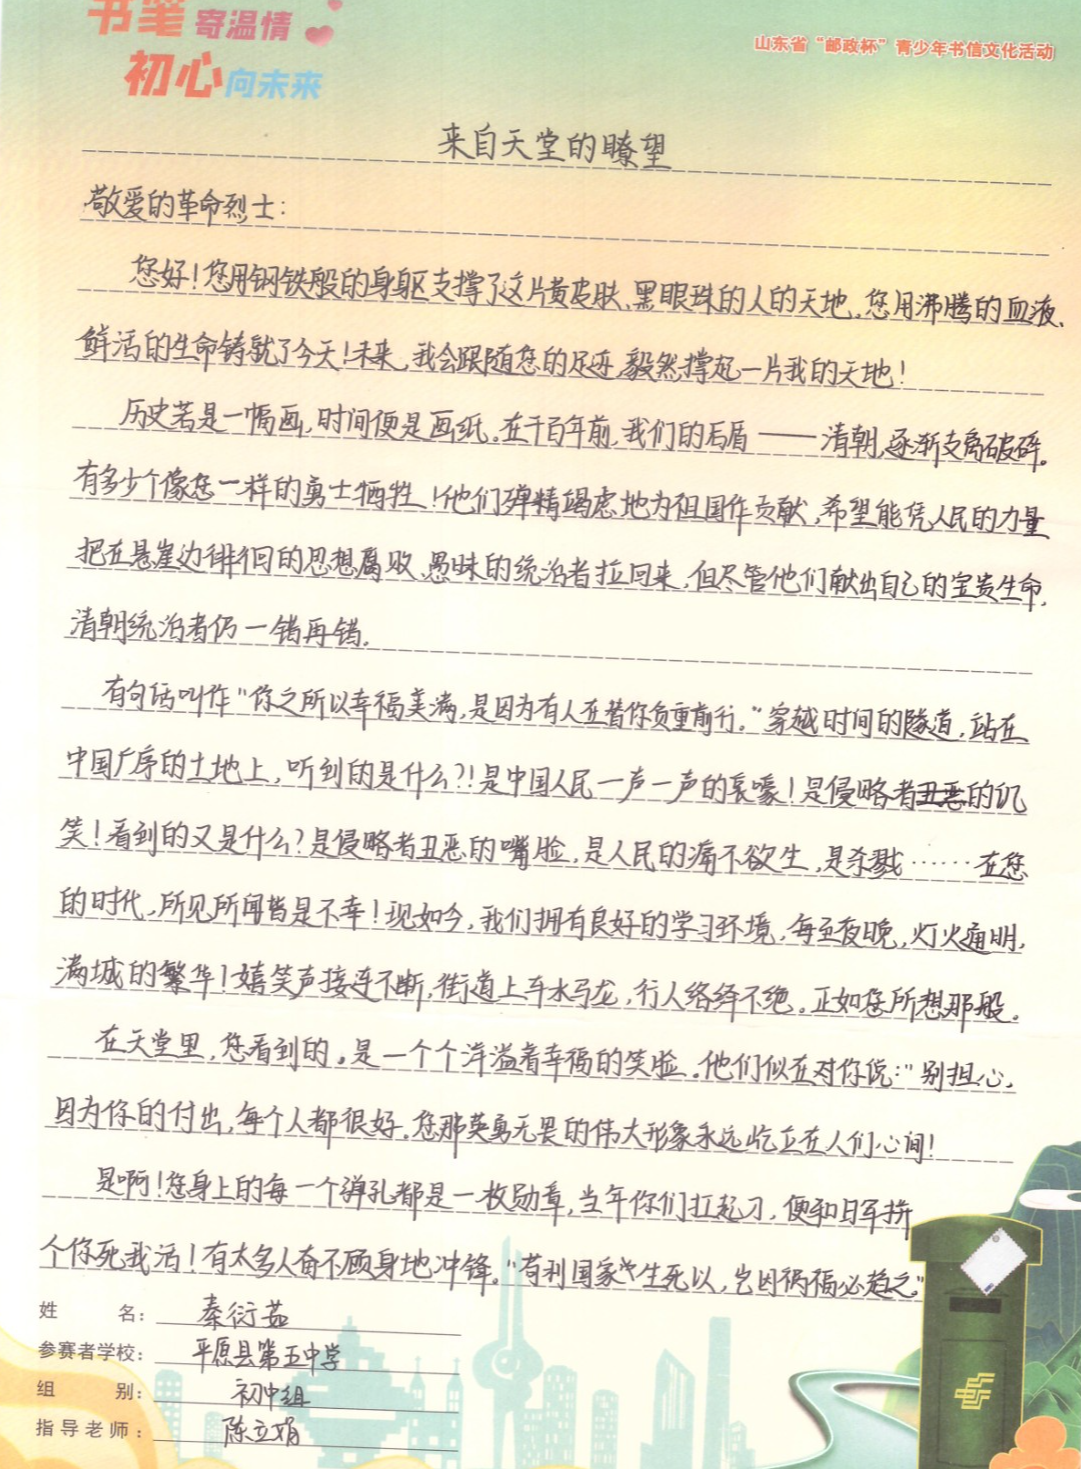 书笔寄温情
初心向未来
山东省“邮政杯”青少年书信文化活动
来自天堂的瞭望
敬爱的革命烈士：
您好！您用钢铁般的身躯支撑了这片黄皮肤、黑眼珠的人的天地。您用沸腾的血液、
鲜活的生命铸就了今天！未来，我会跟随您的足迹，毅然撑起一片我的天地！
历史若是一幅画，时间便是画纸。在千百年前，我们的后盾——清朝，逐渐支离破碎。
有多少个像您一样的勇士牺牲！他们殚精竭虑地为祖国作贡献，希望能凭人民的力量
把在悬崖边徘徊的思想腐败、愚昧的统治者拉回来，但尽管他们献出自己的宝贵生命，
清朝统治者仍一错再错。
有句话叫作“你之所以幸福美满，是因为有人在替你负重前行。”穿越时间的隧道，站在
中国广序的土地上，听到的是什么？！是中国人民一声一声的哀嚎！是侵略者丑恶的讥
笑！看到的又是什么？是侵略者丑恶的嘴脸，是人民的痛不欲生，是杀戮……在您
的时代，所见所闻皆是不幸！现如今，我们拥有良好的学习环境，每至夜晚，灯火通明，
满城的繁华！嬉笑声接连不断，街道上车水马龙，行人络绎不绝。正如您所想那般。
在天堂里，您看到的。是一个个洋溢着幸福的笑脸。他们似在对你说：“别担心。
因为你的付出，每个人都很好。您那英勇无畏的伟大形象永远屹立在人们心间！
是啊！您身上的每一个弹孔都是一枚勋章，当年你们扛起刀，便和日军拼
个你死我活！有太多人奋不顾身地冲锋。“苟利国家生死以，岂因祸福必趋之”
姓名：秦衍茹
参赛者学校：平原县第五中学
组别：初中组
指导老师：陈立娟